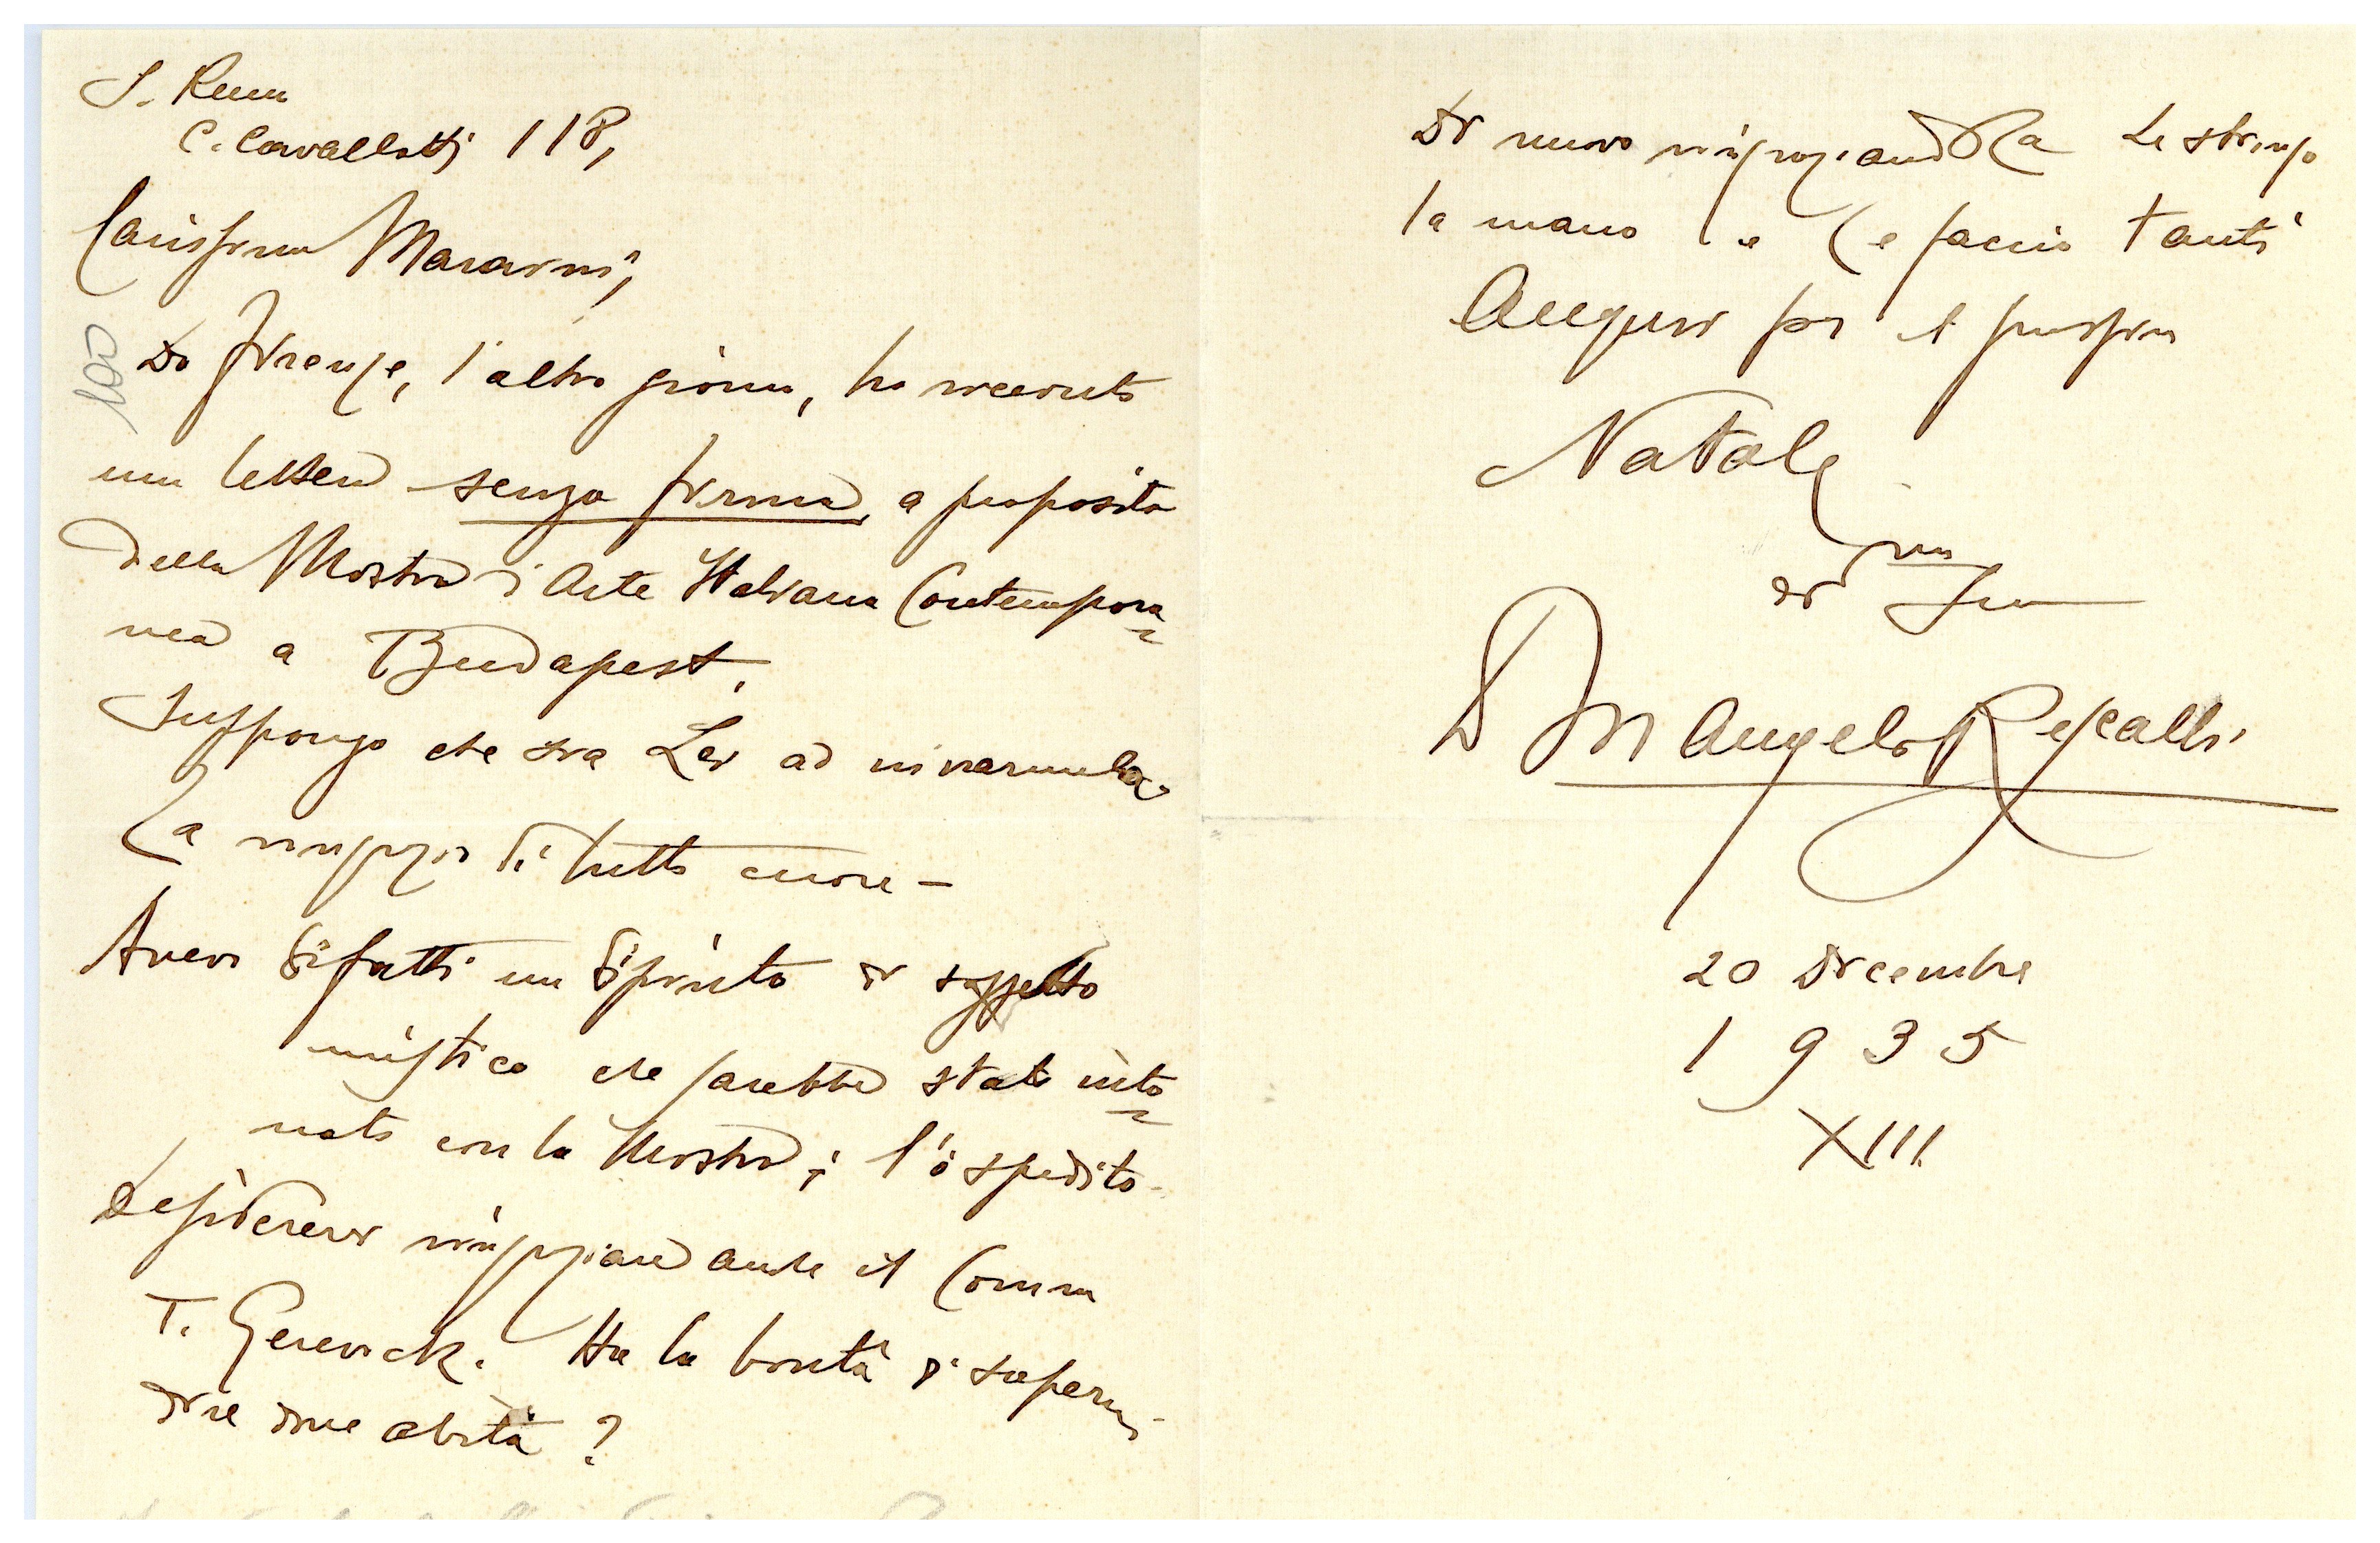 S. Remo
C. Cavallotti 118,
Carissimo Maraini,
100
Da Firenze, l'altro giorno, ho ricevuto
una lettera senza firma, a proposito
della Mostra d'Arte Italiana Contempora=
nea a Budapest.
Suppongo che sia Lei ad inviarmela.
La ringrazio di tutto cuore –
Avevo difatti un dipinto di soggetto
mistico che sarebbe stato into=
nato con la Mostra; l'ò spedito.
Desidererei ringraziare anche il Comm
T. Gerevich. Ha la bontà di sapermi
dire dove abita?
Di nuovo ringraziandoLa Le stringo
la mano e Le faccio tanti
Auguri per il prossimo
Natale
suo
Dr Angelo Rescalli
20 Dicembre
1935
XIII